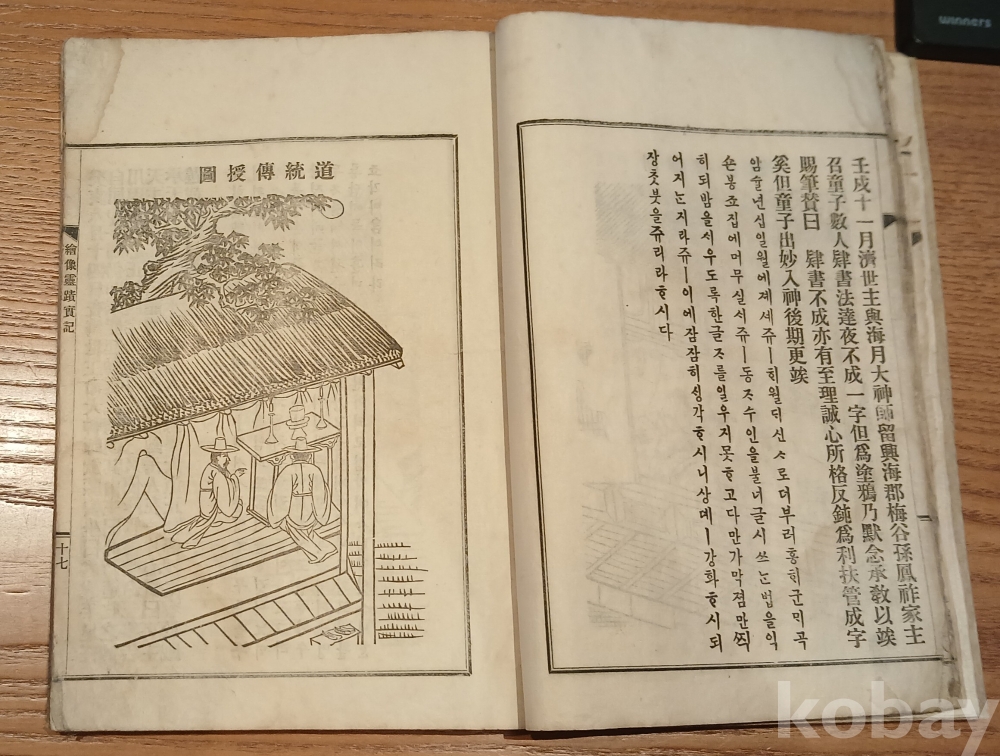 壬戌十一月濟世主與海月大神師留興海郡梅谷孫鳳祚家主
召童子數人肄書法達夜不成一字但爲塗鴉乃默念承敎以竢
賜筆贊曰 肄書不成亦有至理誠心所格反鈍爲利扶管成字
奚但童子出妙入神後期更竢
임슐년십일월에졔셰쥬ㅣᄒᆡ월ᄃᆡ신ᄉᆞ로더부러흥ᄒᆡ군ᄆᆡ곡
손봉죠집에머무실ᄉᆡ쥬ㅣ동ᄌᆞ수인을불너글시쓰ᄂᆞᆫ법을익
히되밤을ᄉᆡ우도록한글ᄌᆞ를일우지못ᄒᆞ고다만가막졈만ᄶᅵᆨ
어지ᄂᆞᆫ지라쥬ㅣ이에잠잠히ᄉᆡᆼ각ᄒᆞ시니상뎨ㅣ강화ᄒᆞ시되
장ᄎᆞᆺ붓을쥬리라ᄒᆞ시다
道統傳授圖
繪像靈蹟實記
十七
winners
kobay